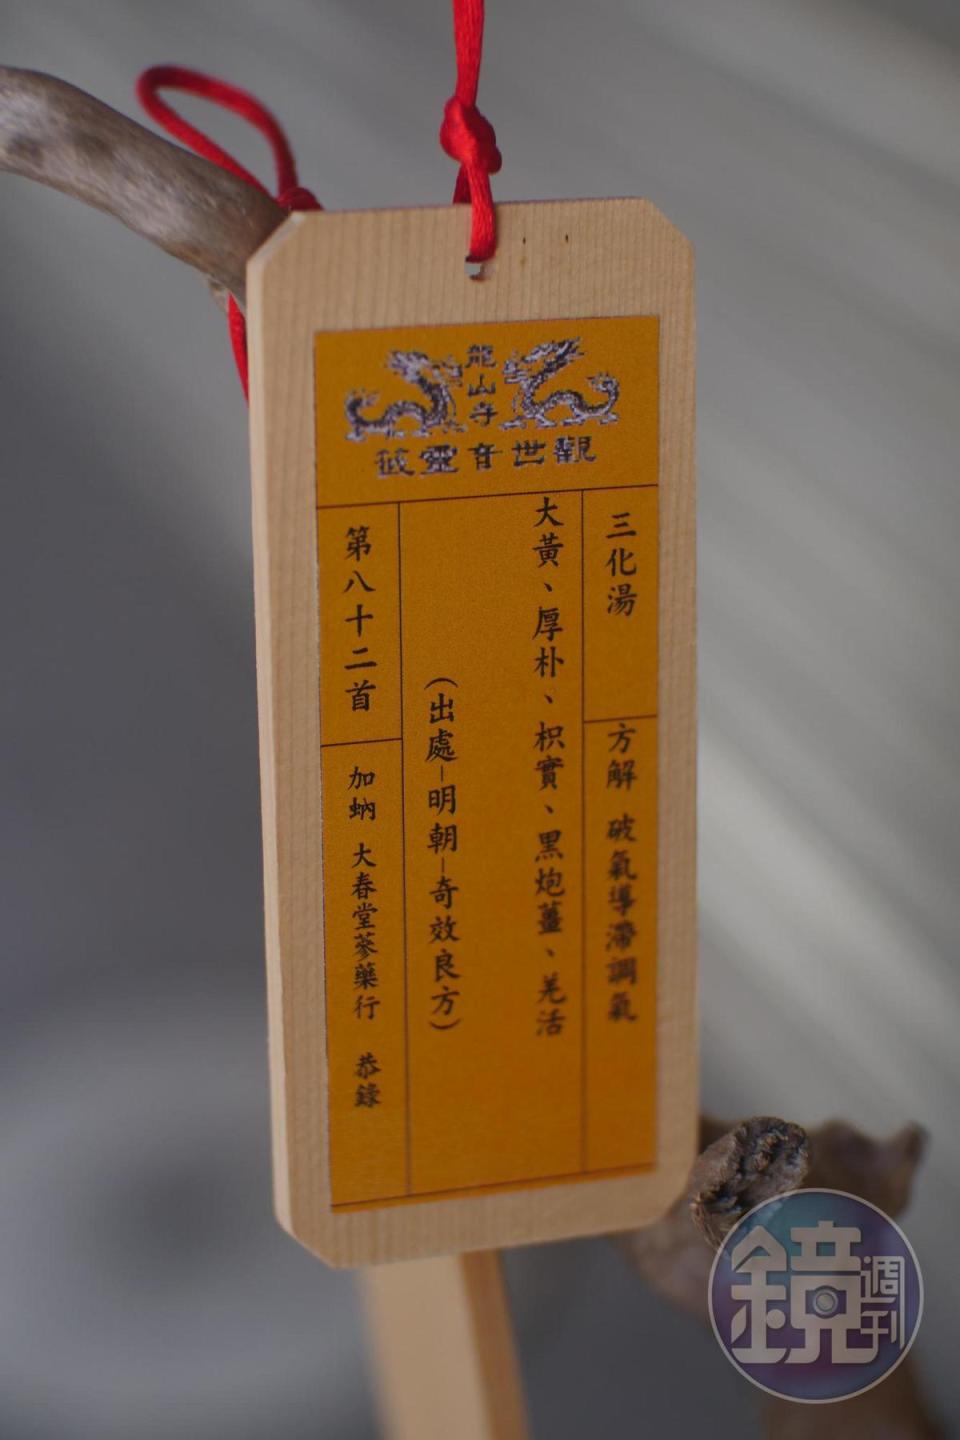 龍山寺
觀世音靈籤
三化湯
方解 破氣導滯調氣
大黃、厚朴、枳實、黑炮薑、羌活
(出處-明朝-奇效良方)
第八十二首
加蚋 大春堂蔘藥行 恭錄
鏡週刊